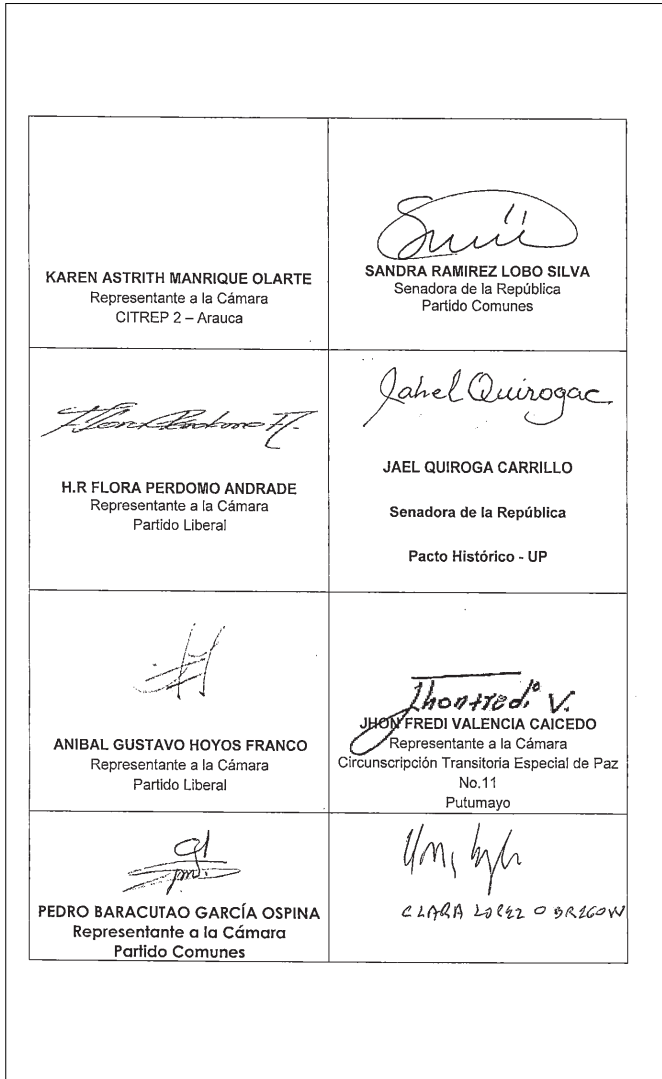 KAREN ASTRITH MANRIQUE OLARTE
Representante a la Cámara
CITREP 2 – Arauca
SANDRA RAMIREZ LOBO SILVA
Senadora de la República
Partido Comunes
H.R FLORA PERDOMO ANDRADE
Representante a la Cámara
Partido Liberal
Jahel Quirogac
JAEL QUIROGA CARRILLO
Senadora de la República
Pacto Histórico - UP
ANIBAL GUSTAVO HOYOS FRANCO
Representante a la Cámara
Partido Liberal
Jhonfredi V.
JHON FREDI VALENCIA CAICEDO
Representante a la Cámara
Circunscripción Transitoria Especial de Paz
No.11
Putumayo
PEDRO BARACUTAO GARCÍA OSPINA
Representante a la Cámara
Partido Comunes
CLARA LOPEZ OBREGON